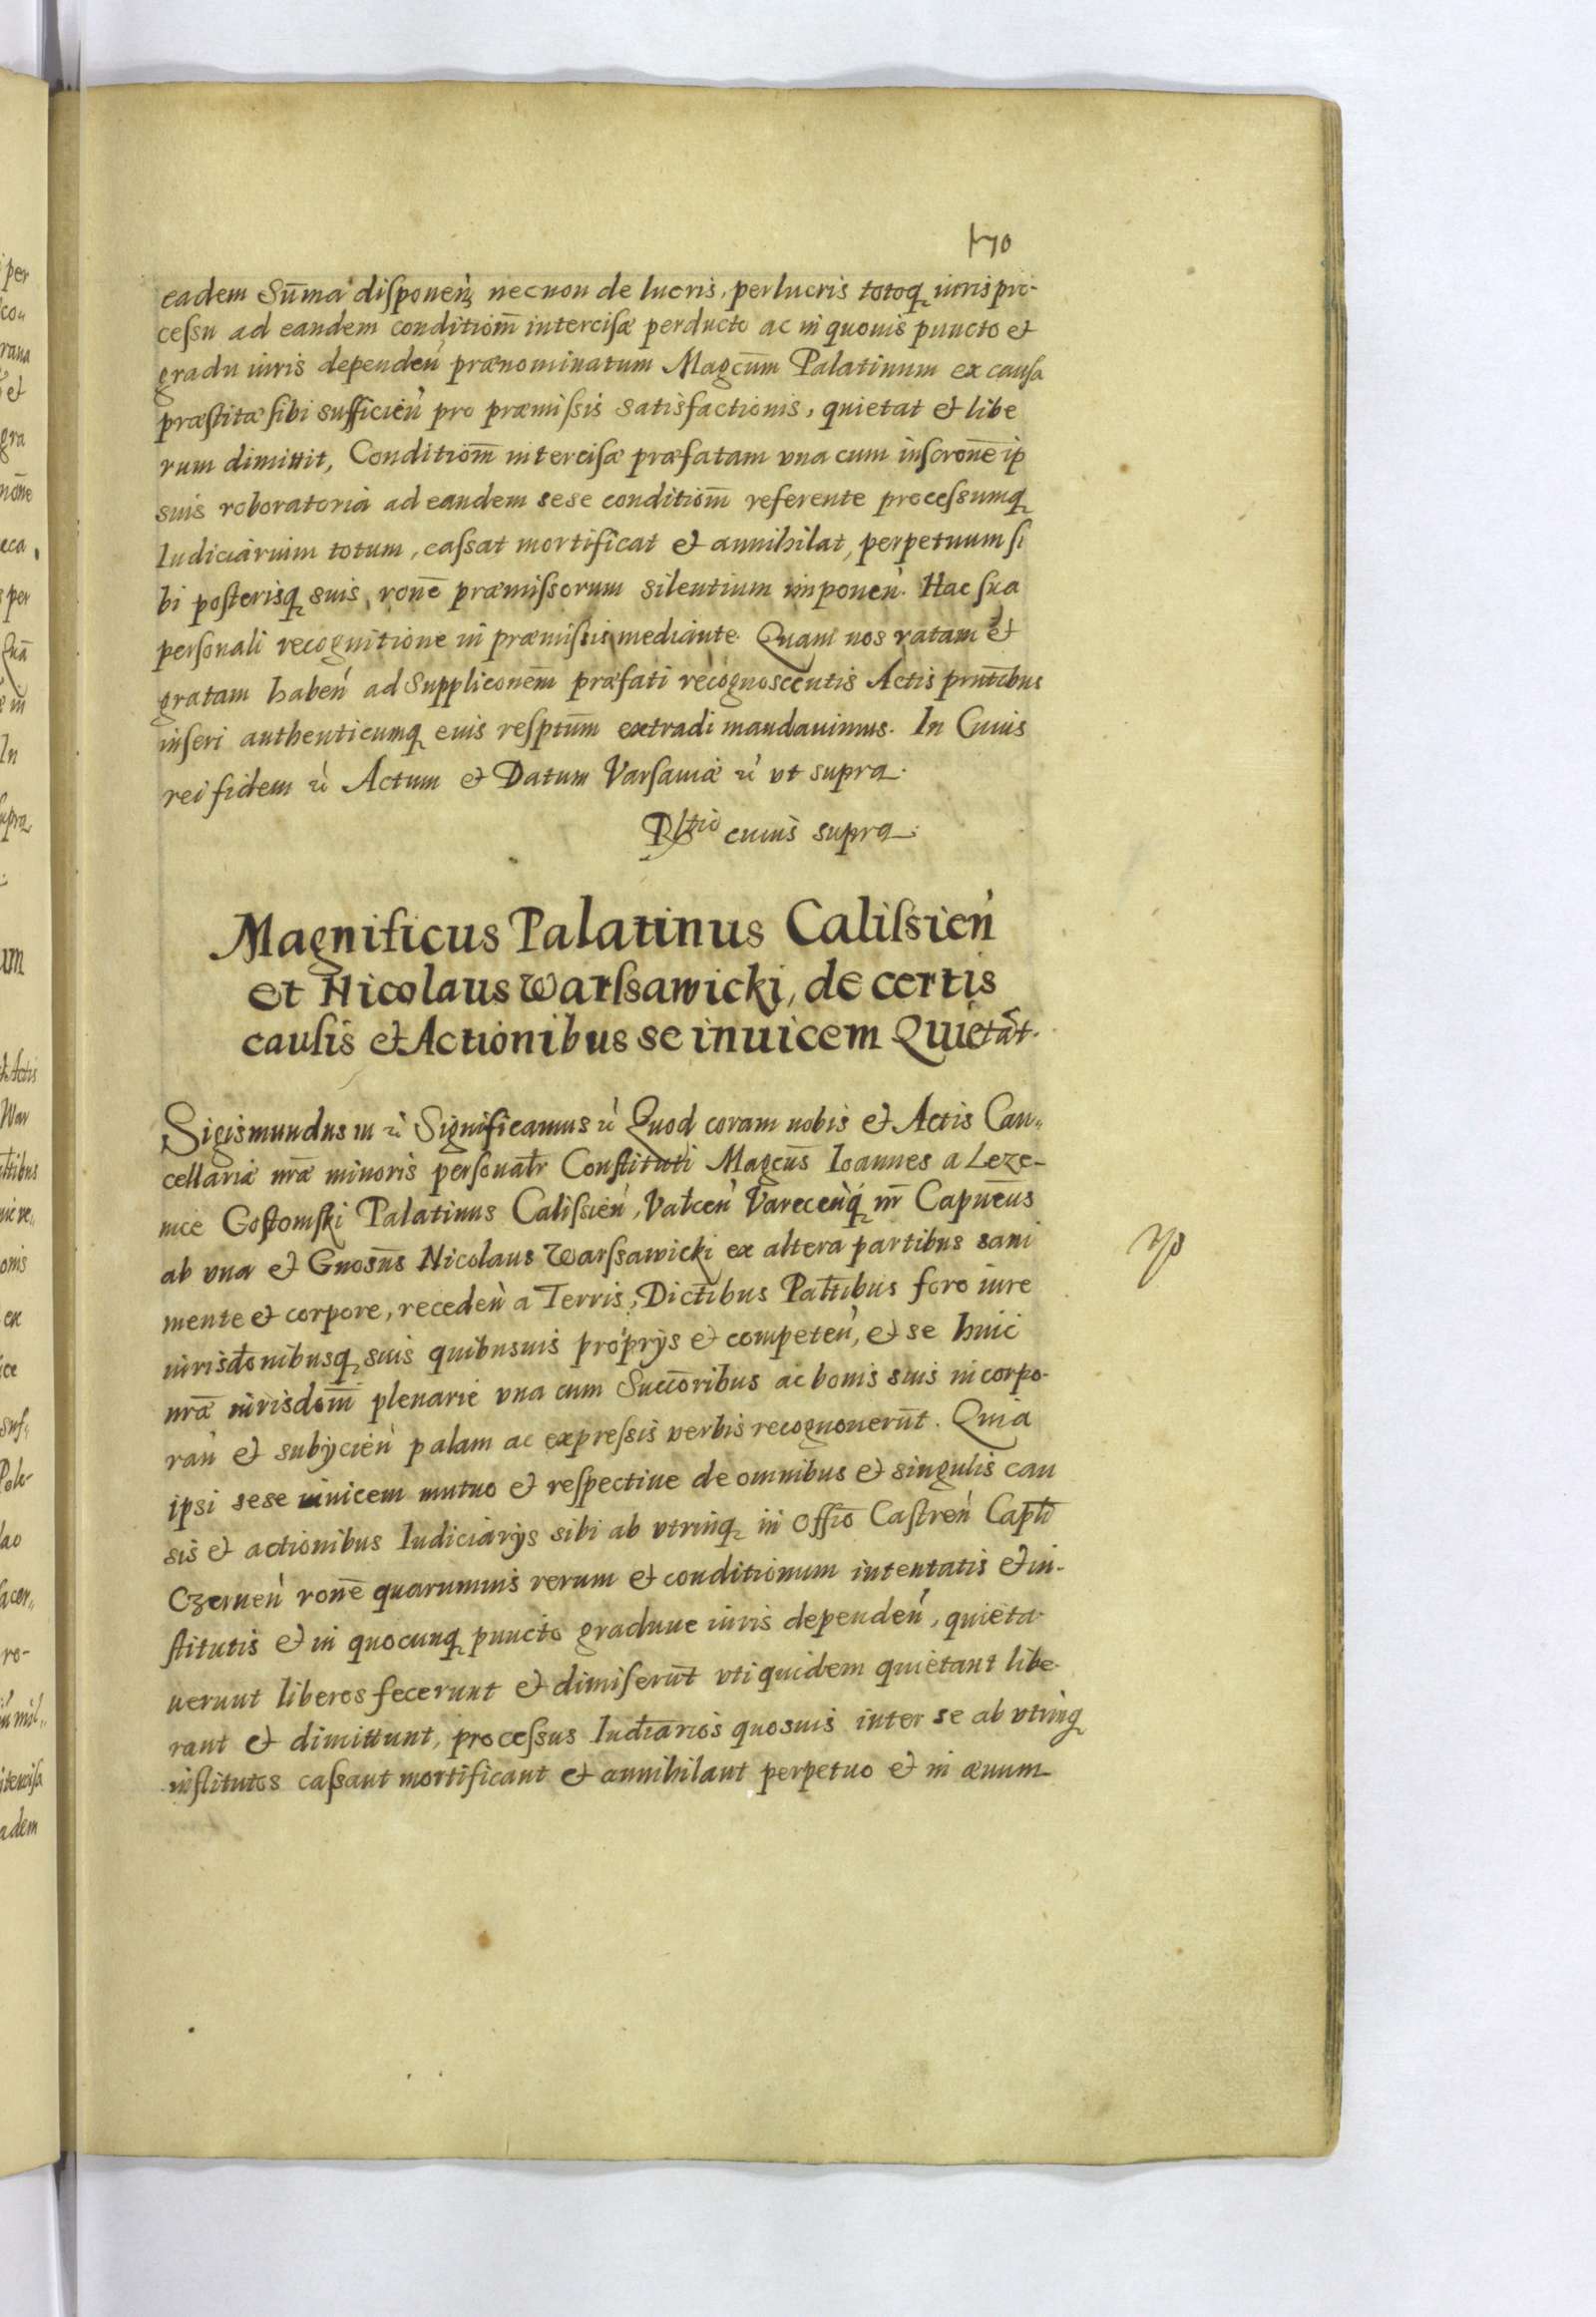 170
eadem Sum̄a disponeń, necnon de lucris, perlucris totoq́ iuris pro-
cessu ad eandem conditiom̄ intercisæ perducto ac in quouis puncto et
gradu iuris dependeń prænominatum Magcūm Palatinum ex causa
præstitæ sibi sufficień pro præmissis satisfactionis, quietat et libe
rum dimittit, Conditiom̄ intercisæ præfatam vna cum inscronē ip
suis roboratoria ad eandem sese conditiom̄ referente processumq́
Iudiciarium totum, cassat mortificat et annihilat, perpetuum si
bi posterisq́ suis, ronē præmissorum silentium imponeń. Hac sua
personali recognitione in præmissis mediante. Quam nos ratam et
gratam habeń ad Suppliconem̄ præfati recognoscentis Actis pntībus
inseri authenticumq́ euis resptūm extradi mandauimus. In Cuius
rei fidem ֊ Actum et Datum Varsauiæ ֊ vt supra.
Rltio cuius supra.
Magnificus Palatinus Calissień
et Nicolaus Warssawicki, de certis
causis et Actionibus se inuicem Quietāt.
Sigismundus III ֊ Significamus ֊ Quod coram nobis et Actis Can„
cellariæ nrǣ minoris personalr̄ Constituti Magcūs Ioannes a Leze-
nice Gostomski Palatinus Calissień, Valceń Vareceńq́ nr̄ Capnēus
ab vna et Gnosūs Nicolaus Warssawicki ex altera partibus sani
mente et corpore, recedeń a Terris, Dictībus Palt̄ibus foro iure
iurisdōnibusq́ suis quibusuis proprijs et competeń, et se huic
nrǣ iurisdom̄ plenarie vna cum Succōribus ac bonis suis incorpo-
rań et subijcień palam ac expressis verbis recognouerūt. Quia
ipsi sese inuicem mutuo et respectiue de omnibus et singulis cau
sis et actionibus Iudiciarijs sibi ab vtrinq́ in Offīo Castreń Capli̅
Czerneń ronē quarumuis rerum et conditionum intentatis et in-
stitutis et in quocunq́ puncto graduue iuris dependeń, quieta-
uerunt liberos fecerunt et dimiserūt vti quidem quietant libe-
rant et dimittunt, processus Iudīarios quosuis inter se ab vtrinq́
institutos cassant mortificant et annihilant perpetuo et in æuum